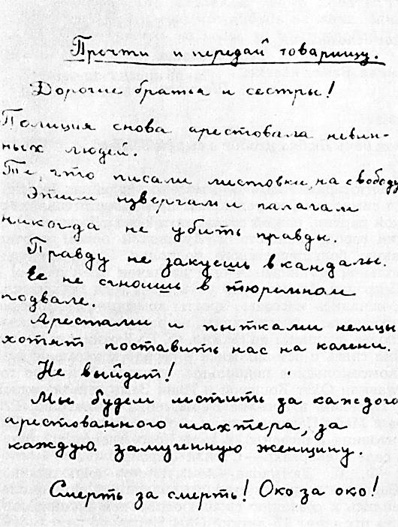 Прочти и передай товарищу.
Дорогие братья и сестры!
Полиция снова арестовала невин-
ных людей.
Те, что писали листовки, на свободе
Этим извергам и палачам
никогда не убить правды.
Правду не закуешь в кандалы.
Ее не сгноишь в тюремном
подвале.
Арестами и пытками немцы
хотят поставить нас на колени.
Не выйдет!
Мы будем мстить за каждого
арестованного шахтера, за
каждую замученную женщину.
Смерть за смерть! Око за око!